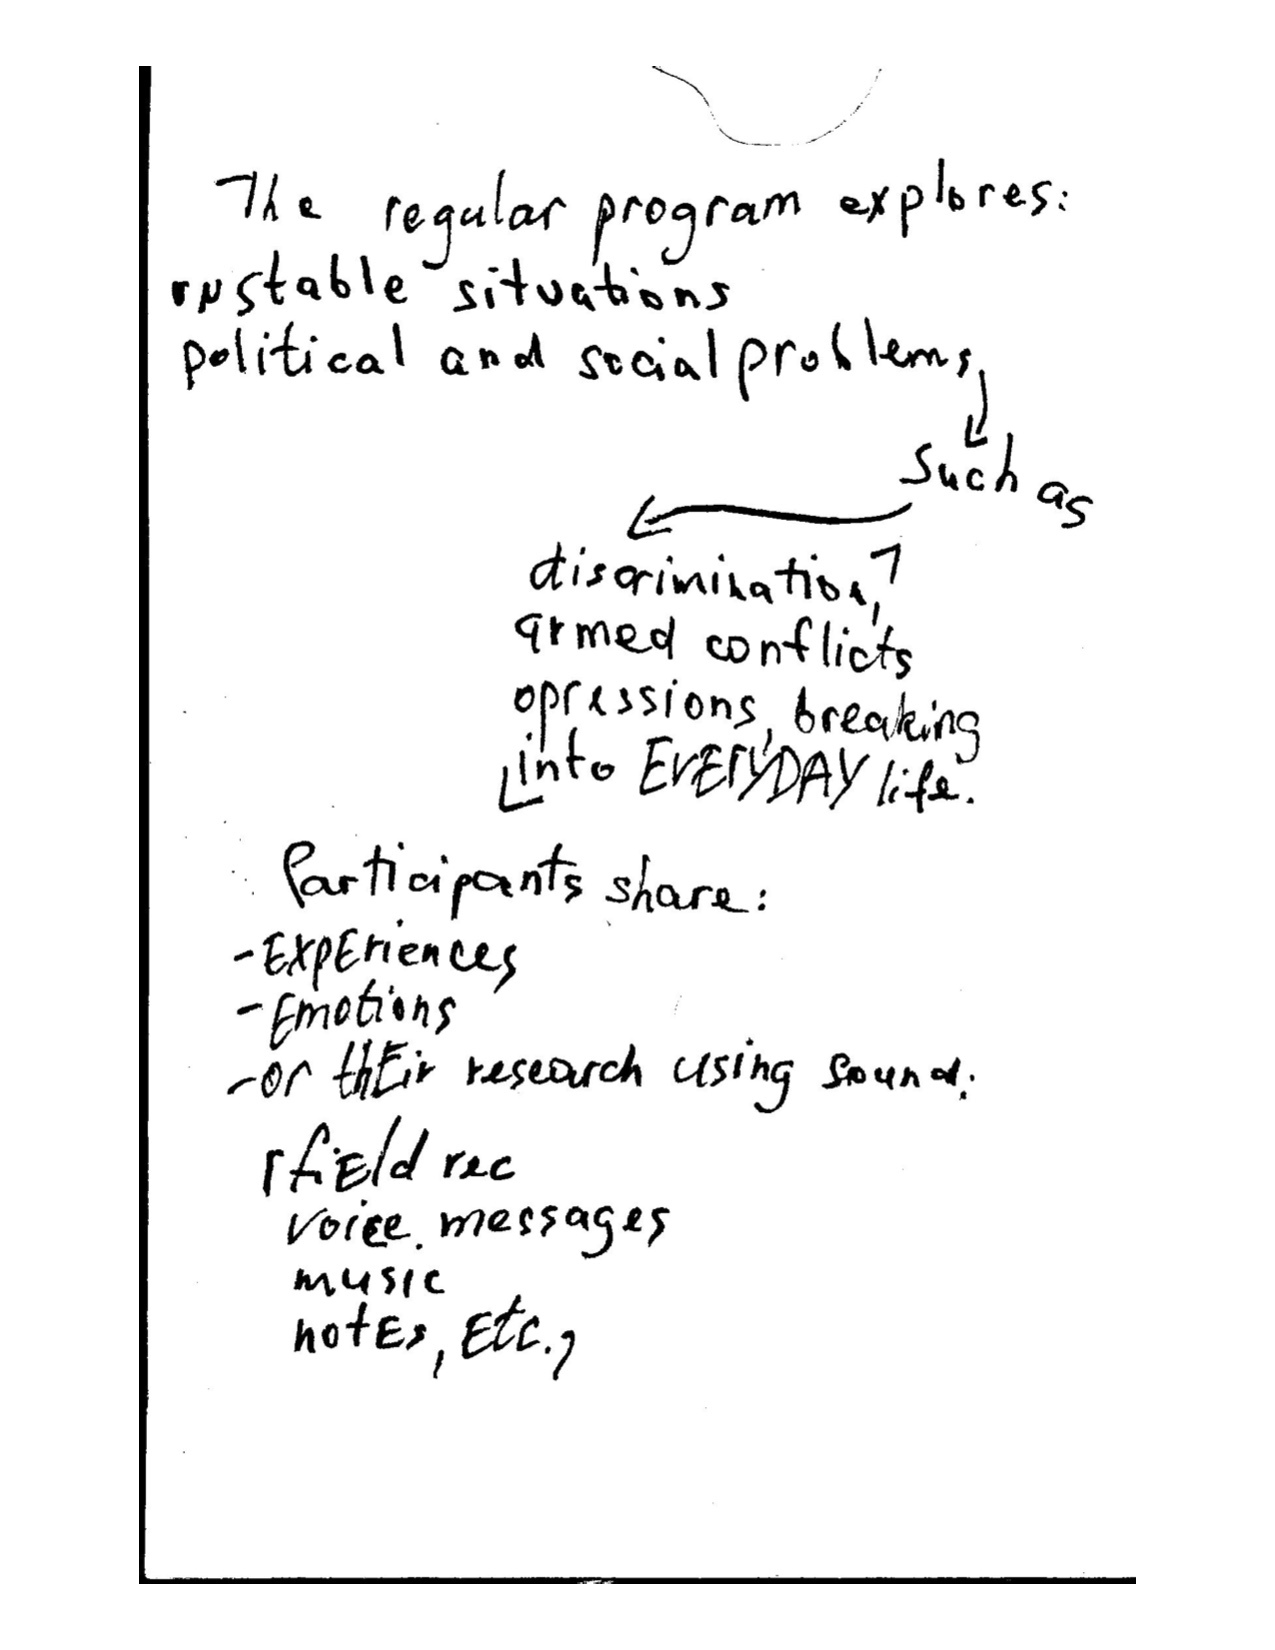 The regular program explores:
unstable situations
political and social problems,
such as
discrimination,
armed conflicts
opressions, breaking
into EVERYDAY life.
Participants share:
- ExpEriences
- Emotions
- or thEir research using sound:
fiEld rec
voice messages
music
notEs, Etc.,